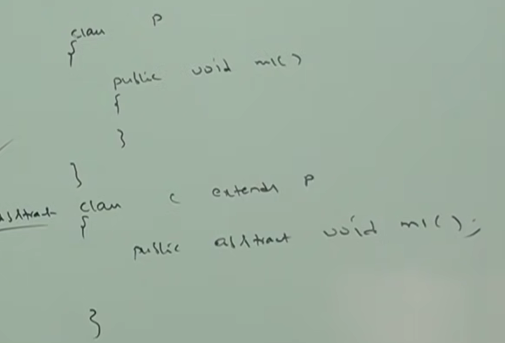 class P
{
public void m1()
{
}
}
abstract class C extends P
{
public abstract void m1();
}